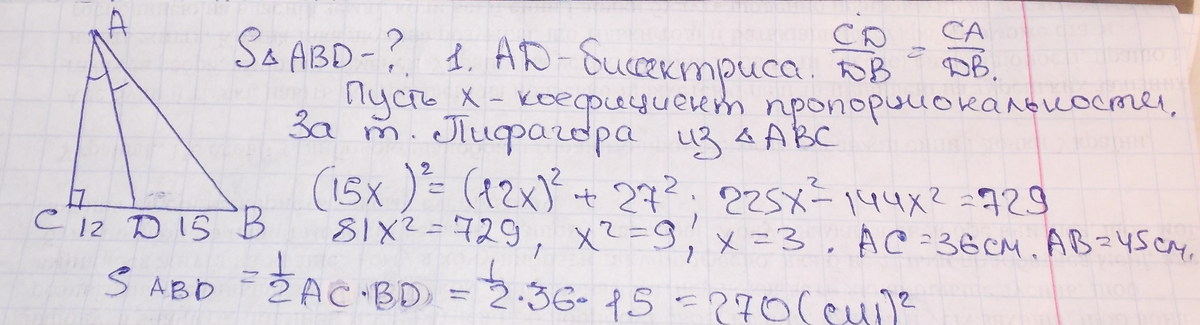 A
S△ABD-? 1. AD-бисектриса. CD/DB = CA/DB.
Пусть x - коефициент пропорциональности.
За т. Пифагора из △ABC
(15x)² = (12x)² + 27²; 225x² - 144x² = 729
C 12 D 15 B
81x² = 729, x² = 9, x = 3. AC = 36см. AB = 45см.
S ABD = 1/2 AC·BD = 1/2·36·15 = 270(см)²